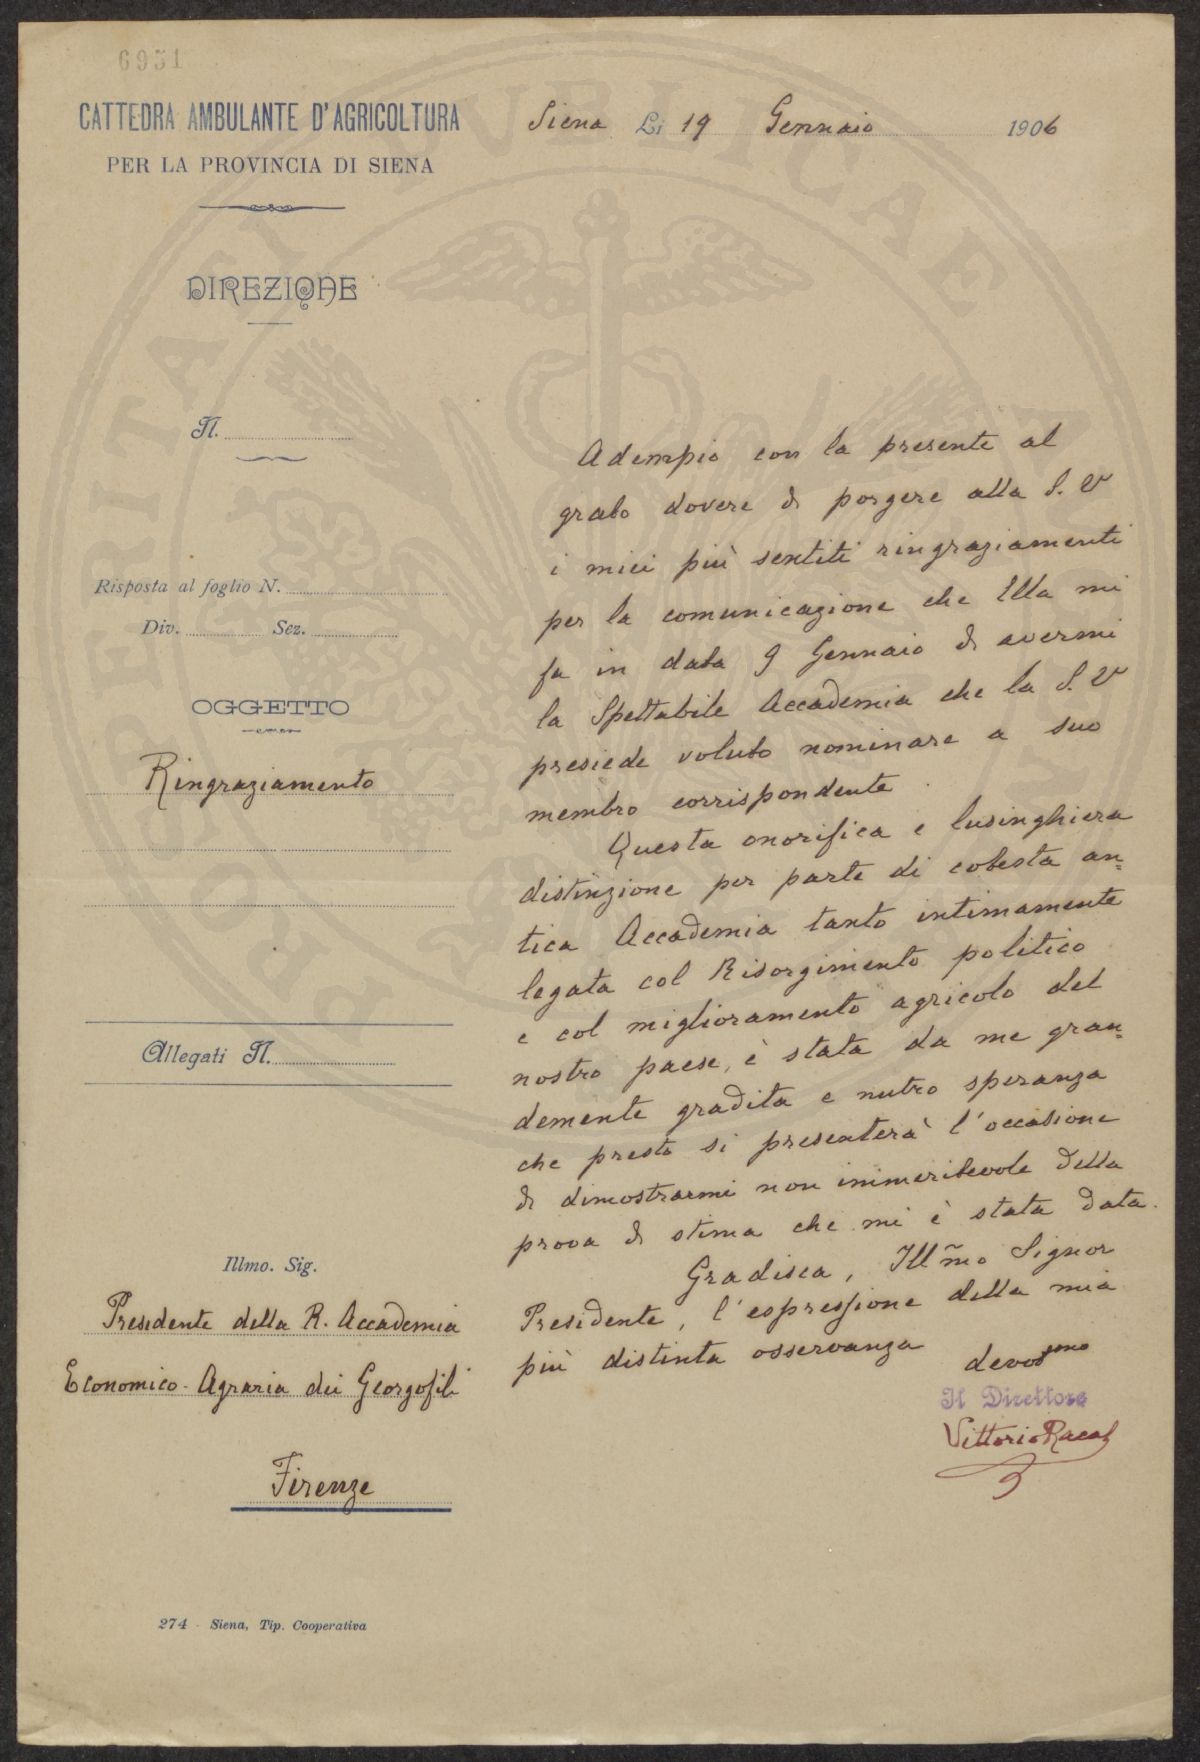 6951
CATTEDRA AMBULANTE D'AGRICOLTURA
PER LA PROVINCIA DI SIENA
Siena Li 19 Gennaio 1906
DIREZIONE
N.
Risposta al foglio N.
Div. Sez.
OGGETTO
Ringraziamento
Allegati N.
Illmo. Sig.
Presidente della R. Accademia
Economico-Agraria dei Georgofili
Firenze
274 - Siena, Tip. Cooperativa
Adempio con la presente al
grato dovere di porgere alla S. V
i miei più sentiti ringraziamenti
per la comunicazione che Ella mi
fa in data 9 Gennaio di avermi
la Spettabile Accademia che la S. V
presiede voluto nominare a suo
membro corrispondente.
Questa onorifica e lusinghiera
distinzione per parte di cotesta an=
tica Accademia tanto intimamente
legata col Risorgimento politico
e col miglioramento agricolo del
nostro paese, è stata da me gran=
demente gradita e nutro speranza
che presto si presenterà l'occasione
di dimostrarmi non immeritevole della
prova di stima che mi è stata data.
Gradisca, Ill~mo Signor
Presidente, l'espressione della mia
più distinta osservanza
devotmo
Il Direttore
Vittorio Racah